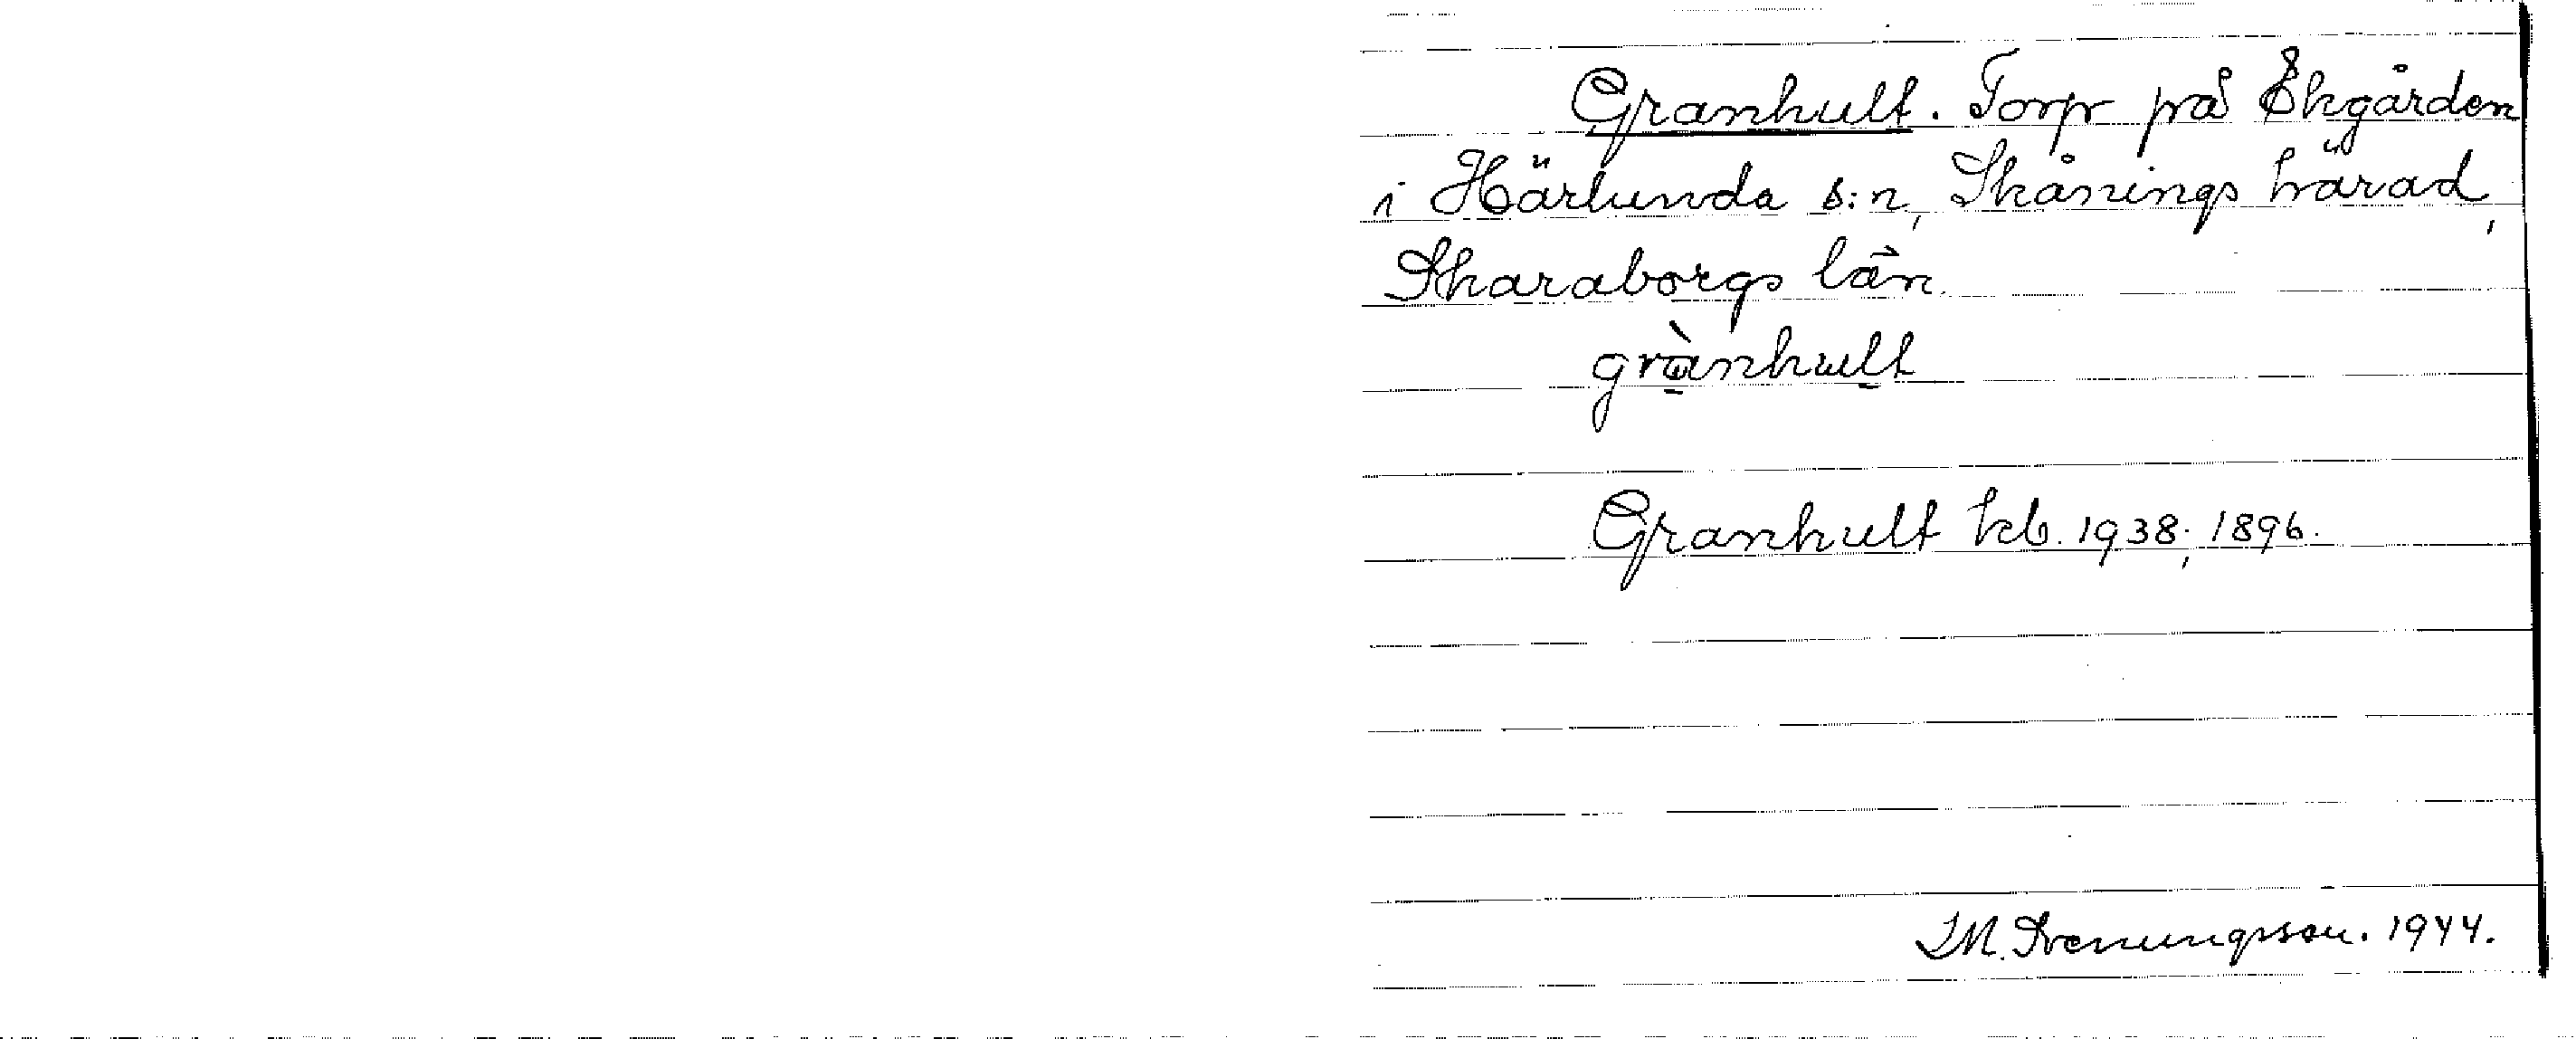 Granhult. Torp på Ekgården
i Härlunda s:n, Skånings härad,
Skaraborgs län.
grànhult
Granhult kb. 1938; 1896.
I M. Svenungsson. 1944.